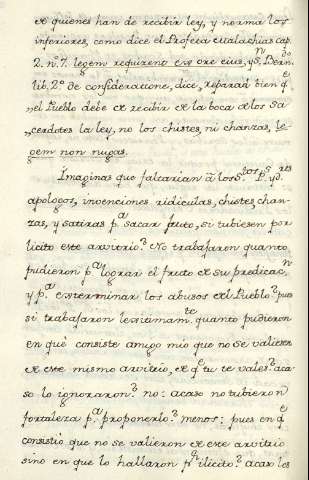 de quienes han de recibir ley, y norma los
inferiores, como dice el Profeta Malachias cap.
2. nº. 7. legem requirent ex ore eius, y Sn. Bern.do
lib. 2º. de consideratione, dice, reparad bien qe
„el Pueblo debe de recibir de la boca de los Sa
„cerdotes la ley, no los chistes, ni chanzas, le-
gem non nugas.
Imaginas que faltarian á los Stos. Ps. y Dres
apologos, invenciones ridiculas, chistes, chan-
zas, y satiras pa. sacar fruto, si tubiesen por
licito este arvitrio? No trabajaron quanto
pudieron pa. lograr el fruto de su predicacn.
y pa. exterminar los abusos del Pueblo? pues
si trabajaron lexitimamte. quanto pudieron
en qué consiste amigo mio que no se valiesen
de este mismo arvitrio, de qe tu te vales? aca-
so lo ignoraron? no: acaso no tubieron
fortaleza pa. proponerlo? menos: pues en qe
consistió que no se valieron de este arvitrio
sino en que lo hallaron pr. ilicito? acaso los